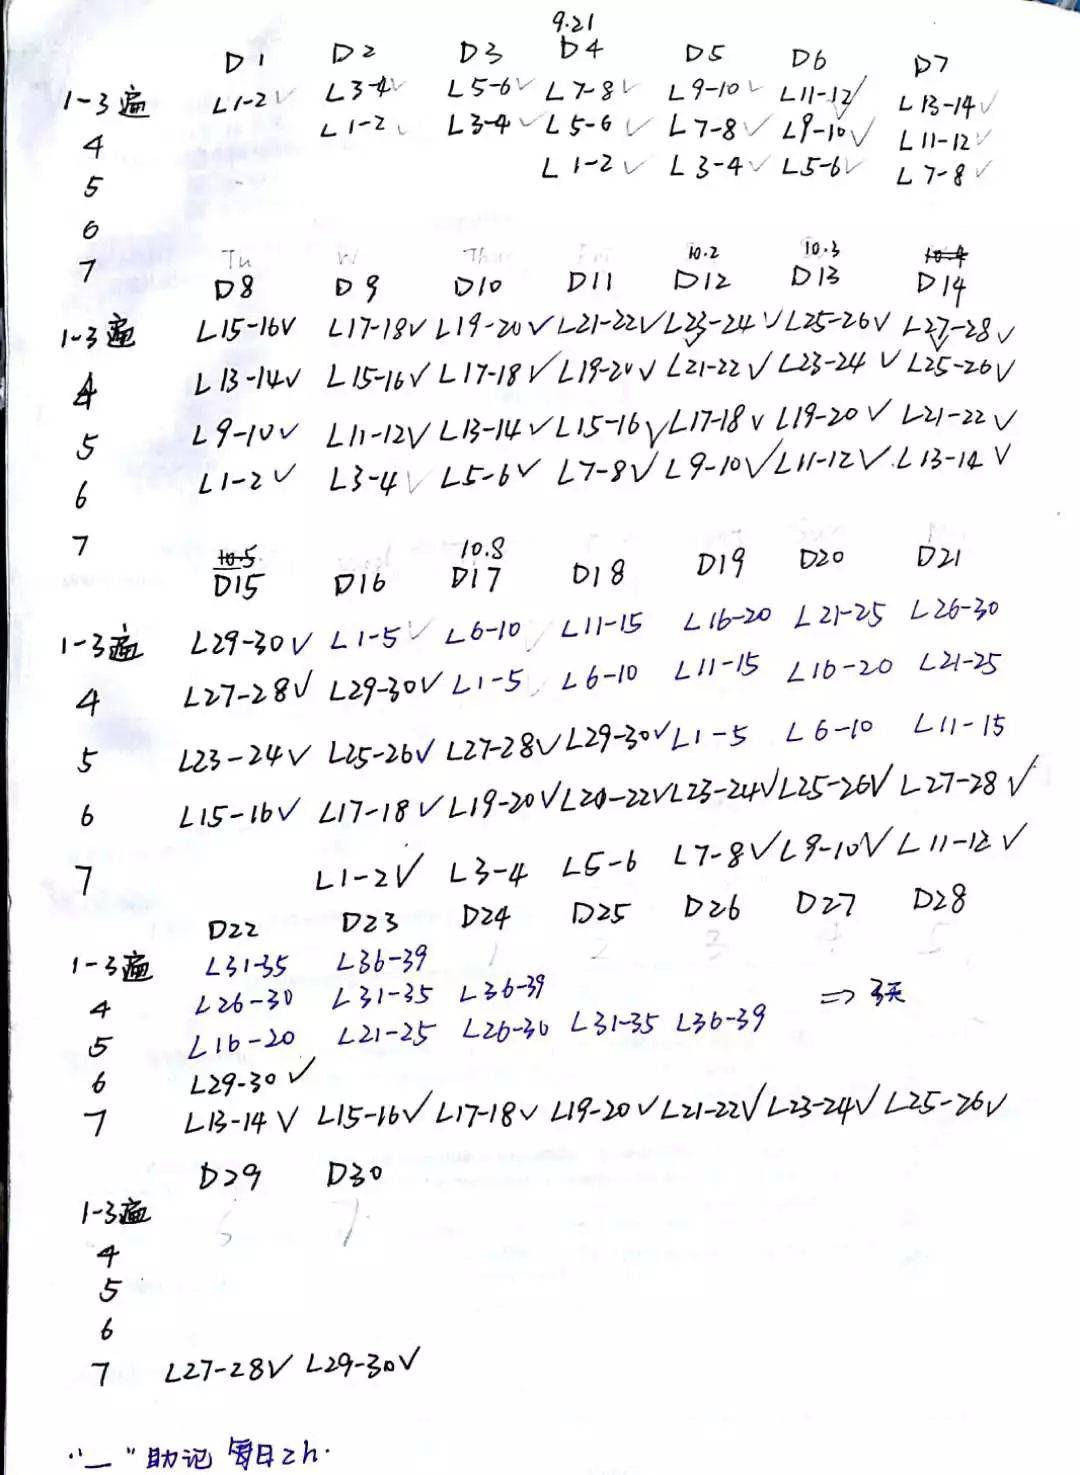 9.21
D1 D2 D3 D4 D5 D6 D7
1-3遍 L1-2✓ L3-4✓ L5-6✓ L7-8✓ L9-10✓ L11-12✓ L13-14✓
4 L1-2✓ L3-4✓ L5-6✓ L7-8✓ L9-10✓ L11-12✓
5 L1-2✓ L3-4✓ L5-6✓ L7-8✓
6
7
Tu W Thu Fri 10.2 10.3 10.4
D8 D9 D10 D11 D12 D13 D14
1-3遍 L15-16✓ L17-18✓ L19-20✓ L21-22✓ L23-24✓ L25-26✓ L27-28✓
4 L13-14✓ L15-16✓ L17-18✓ L19-20✓ L21-22✓ L23-24✓ L25-26✓
5 L9-10✓ L11-12✓ L13-14✓ L15-16✓ L17-18✓ L19-20✓ L21-22✓
6 L1-2✓ L3-4✓ L5-6✓ L7-8✓ L9-10✓ L11-12✓ L13-14✓
7
10.5 10.8
D15 D16 D17 D18 D19 D20 D21
1-3遍 L29-30✓ L1-5✓ L6-10✓ L11-15 L16-20 L21-25 L26-30
4 L27-28✓ L29-30✓ L1-5✓ L6-10 L11-15 L16-20 L21-25
5 L23-24✓ L25-26✓ L27-28✓ L29-30✓ L1-5 L6-10 L11-15
6 L15-16✓ L17-18✓ L19-20✓ L20-22✓ L23-24✓ L25-26✓ L27-28✓
7 L1-2✓ L3-4 L5-6 L7-8✓ L9-10✓ L11-12✓
D22 D23 D24 D25 D26 D27 D28
1 2 3 4 5
1-3遍 L31-35 L36-39
4 L26-30 L31-35 L36-39 => 3天
5 L16-20 L21-25 L26-30 L31-35 L36-39
6 L29-30✓
7 L13-14✓ L15-16✓ L17-18✓ L19-20✓ L21-22✓ L23-24✓ L25-26✓
D29 D30
1-3遍 6 7
4
5
6
7 L27-28✓ L29-30✓
"一"助记 每日2h.